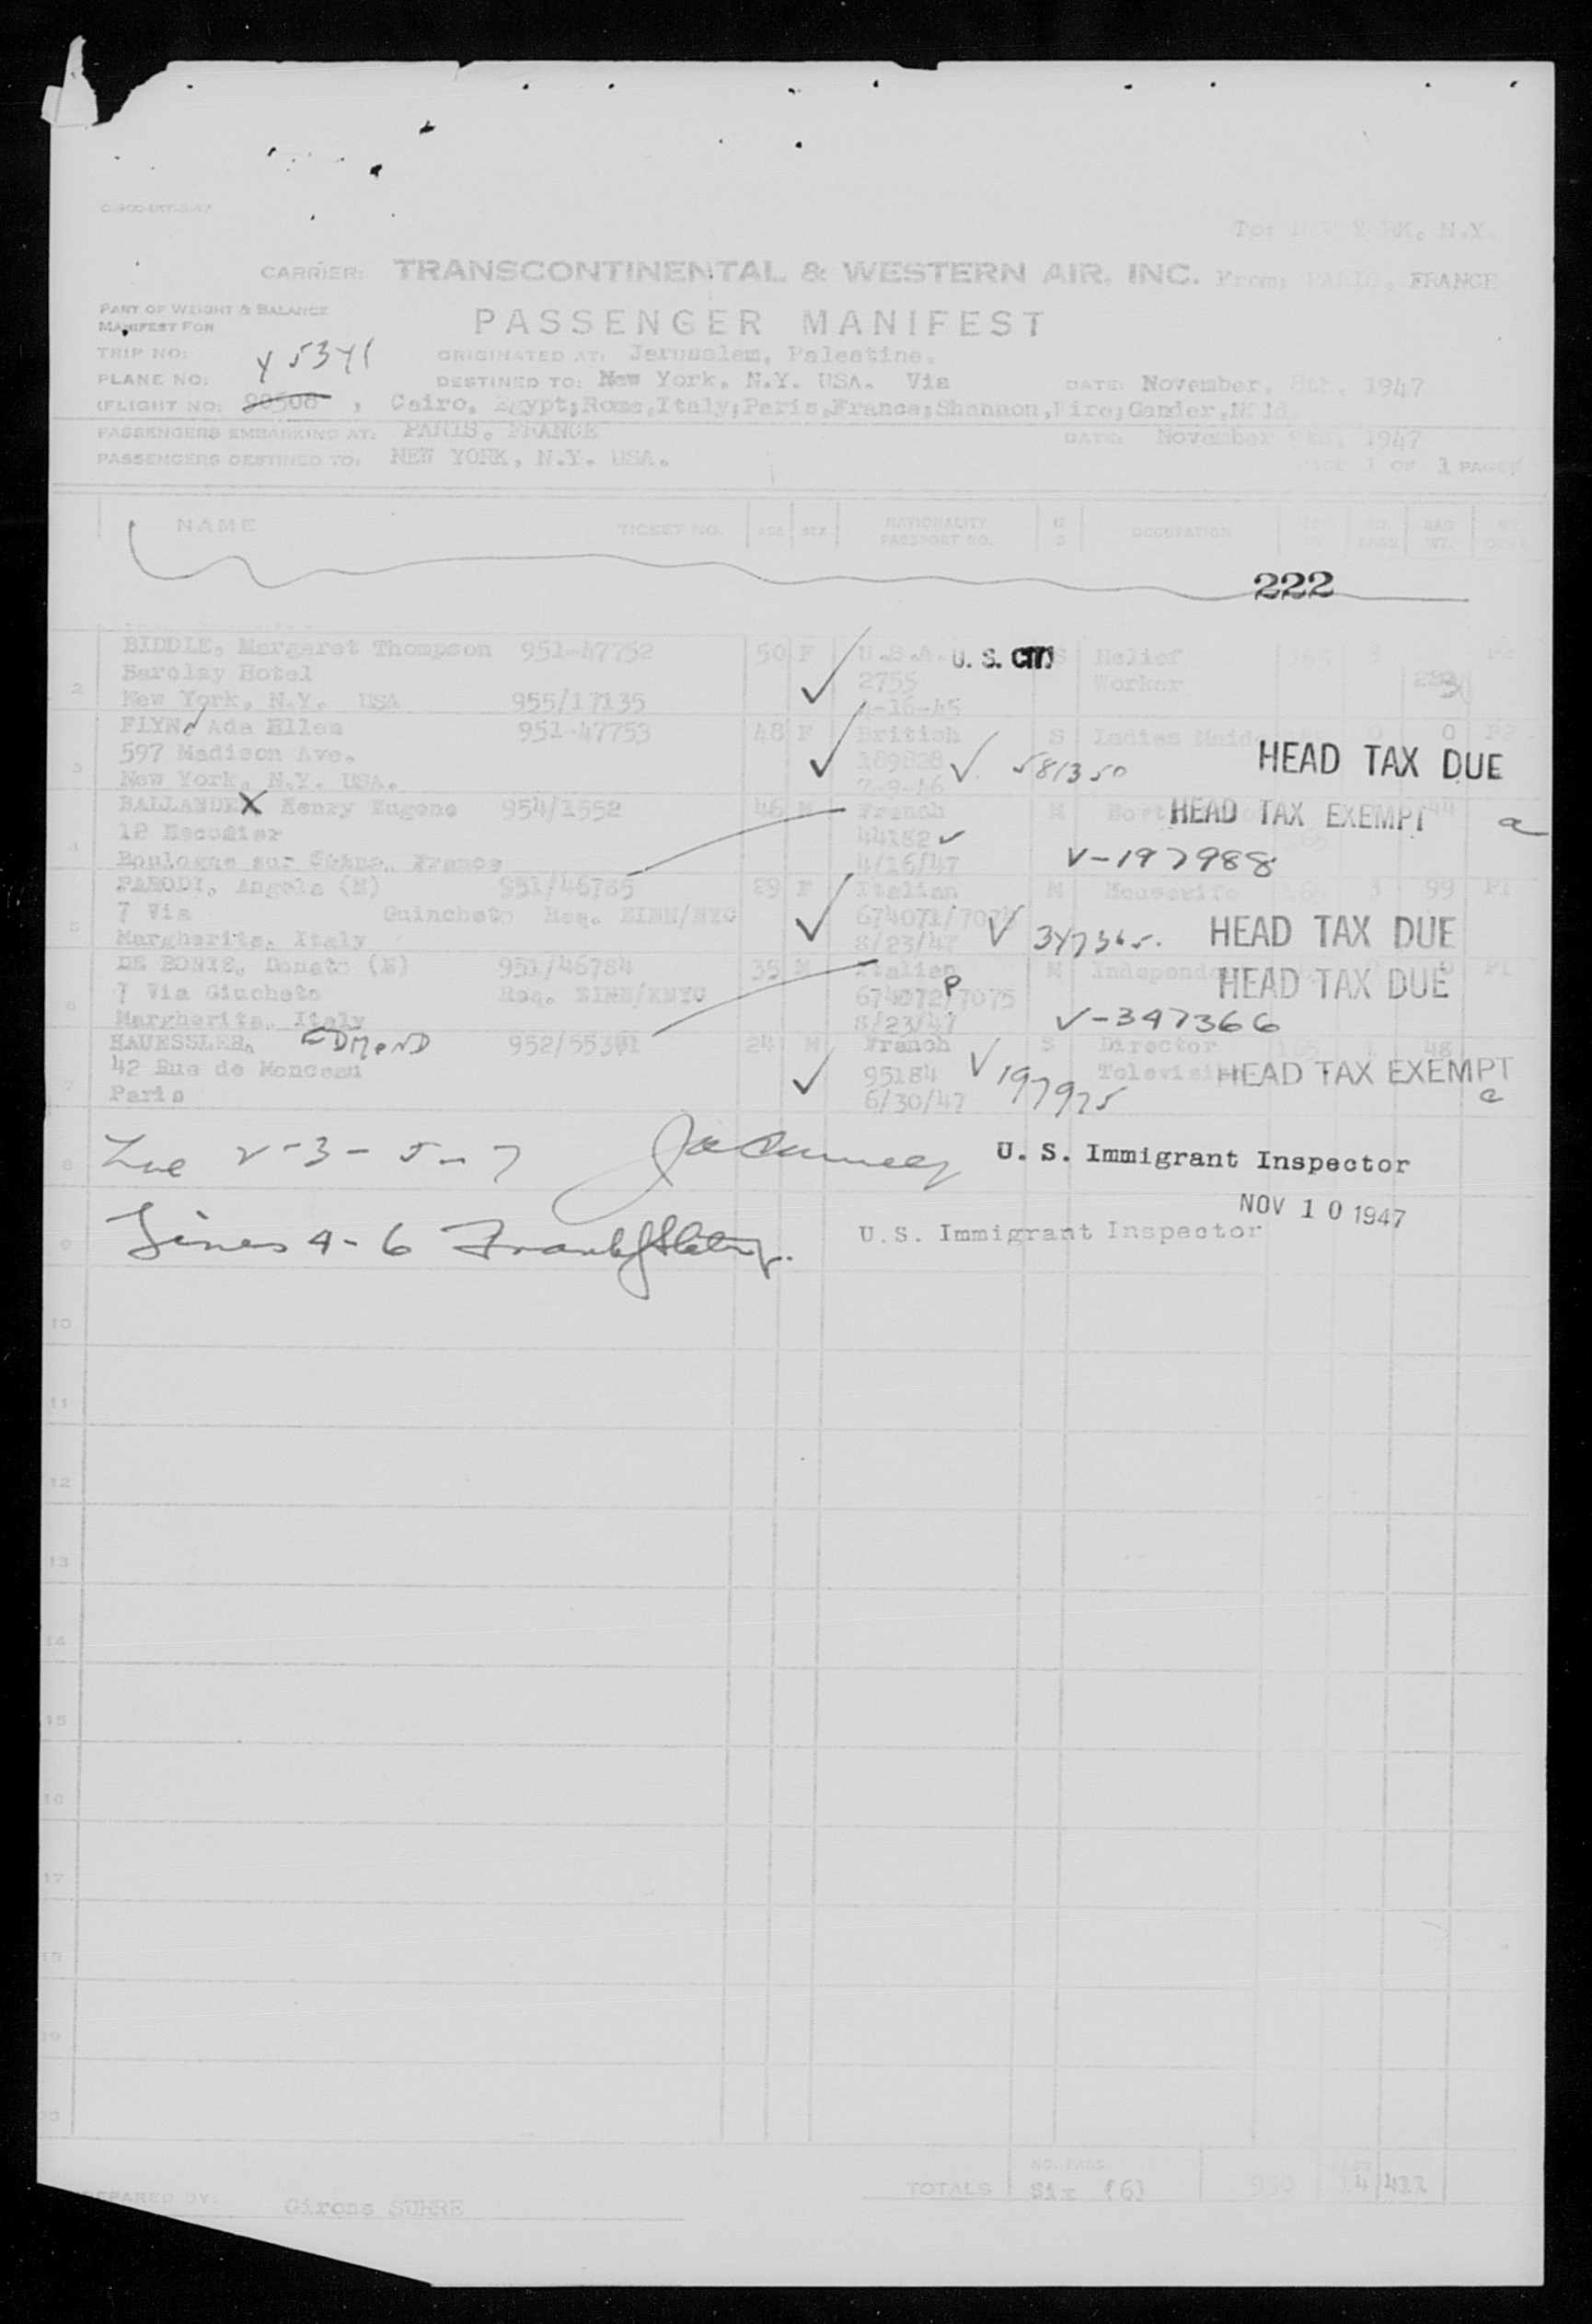 To: NEW YORK, N.Y.
CARRIER: TRANSCONTINENTAL & WESTERN AIR, INC. From: PARIS, FRANCE
PART OF WEIGHT & BALANCE
MANIFEST FOR
PASSENGER MANIFEST
TRIP NO: Y 5341 ORIGINATED AT: Jerusalem, Palestine.
PLANE NO: DESTINED TO: New York, N.Y. USA. Via DATE: November, 8th, 1947
(FLIGHT NO: 90508 , Cairo, Egypt;Rome,Italy;Paris,France;Shannon,Eire;Gander,Nfld
PASSENGERS EMBARKING AT: PARIS, FRANCE DATE: November 9th, 1947
PASSENGERS DESTINED TO: NEW YORK, N.Y. USA.
PAGE 1 OF 1 PAGES
NAME TICKET NO. AGE SEX NATIONALITY PASSPORT NO. OCCUPATION
222
BIDDLE, Margaret Thompson 951-47752 50 F U.S.A. U. S. CIT S Relief
Barclay Hotel 2755 Worker
2 New York, N.Y. USA 955/17135 4-16-45
FLYN, Ada Ellen 951-47753 48 F British S Ladies Maid 0 0
597 Madison Ave. 189828 V 581350 HEAD TAX DUE
3 New York, N.Y. USA. 7-9-46
BALLANDE X Henry Eugene 954/1552 46 M French M HEAD TAX EXEMPT 44 a
12 Escodier 44182
4 Boulogne sur Seine, France 4/16/47 V-197988
PARODI, Angela (M) 951/46785 29 F Italian M Housewife 3 99
7 Via Guincheto Req. EINN/NYC 674071/7074 V 347365. HEAD TAX DUE
5 Margherita, Italy 8/23/47
DE BONIS, Donato (M) 951/46784 35 M Italian M Independ
7 Via Giucheto Req. EINN/KNYC 674072/7075 P HEAD TAX DUE
6 Margherita, Italy 8/23/47 V-347366
HAUESSLER, EDMOND 952/55341 24 M French S Director 48
42 Rue de Monceau 95184 V 197975 Televisi HEAD TAX EXEMPT
7 Paris 6/30/47 a
8 Line 2-3-5-7 U. S. Immigrant Inspector
NOV 10 1947
9 Lines 4-6 U.S. Immigrant Inspector
10
11
12
13
14
15
16
17
18
19
20
PREPARED BY: Girons SURRE
TOTALS NO. PASS. Six (6) 950 14 411